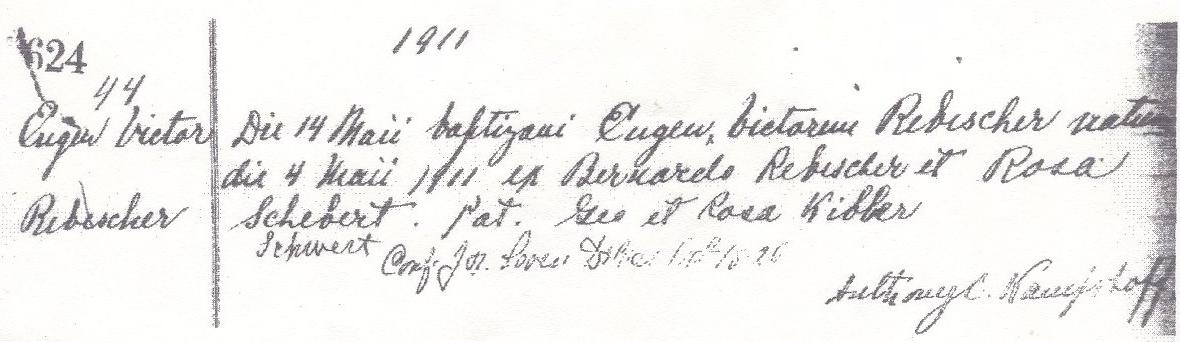 1911
624
44
Eugen Victor
Rebescher
Die 14 Maii baptizavi Eugen, Victorem Rebescher natum
die 4 Maii 1911 ex Bernardo Rebischer et Rosa
Schebert. Pat. Geo et Rosa Kibler
Schwert
Conf. Jos.
Anthony C. Kampshoff